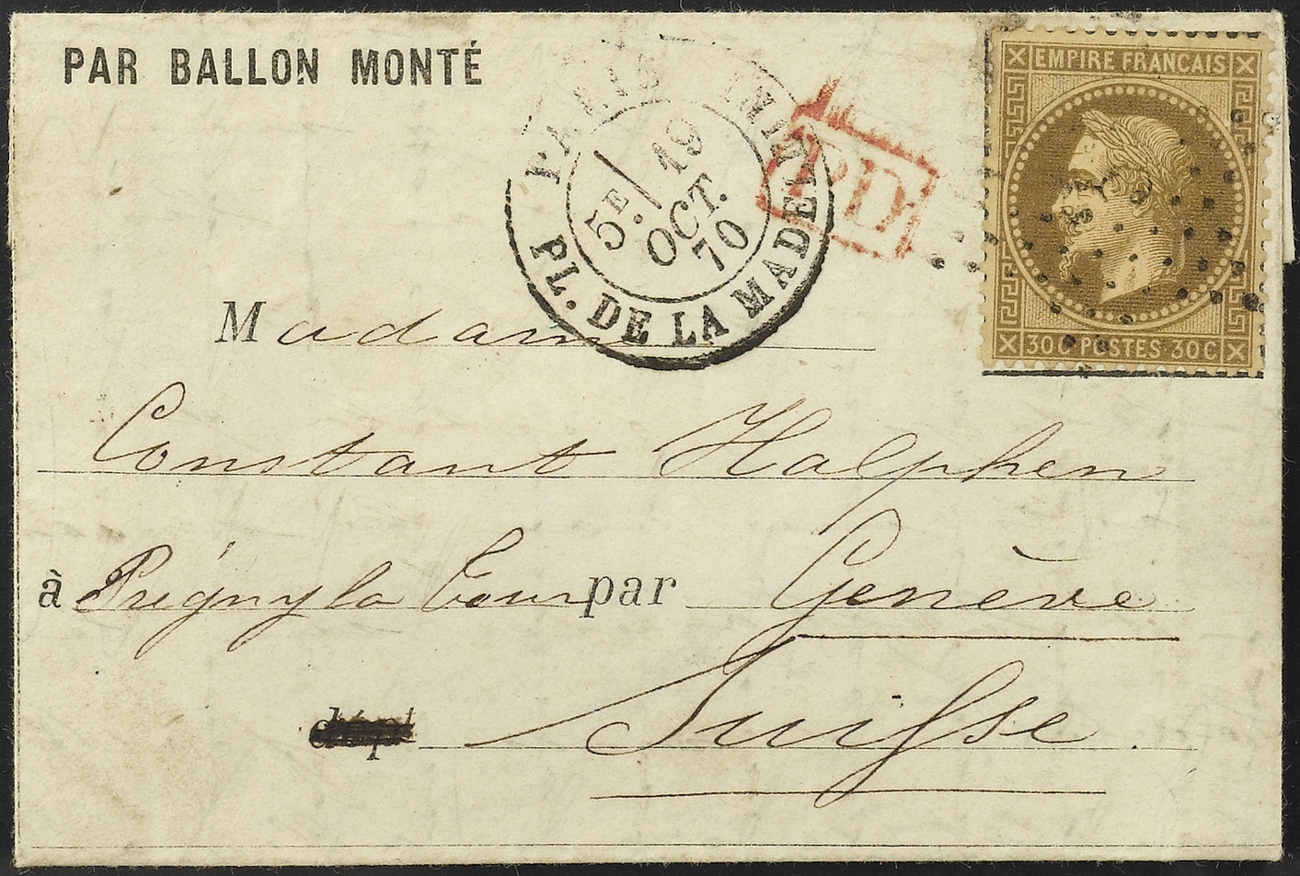 PAR BALLON MONTÉ
PARIS
5E. 19
OCT.
70
PL. DE LA MADEL
PD
EMPIRE FRANÇAIS
30C POSTES 30C
Madame
Constant Halphen
à Prégny la Tour par Genève
dépt Suisse